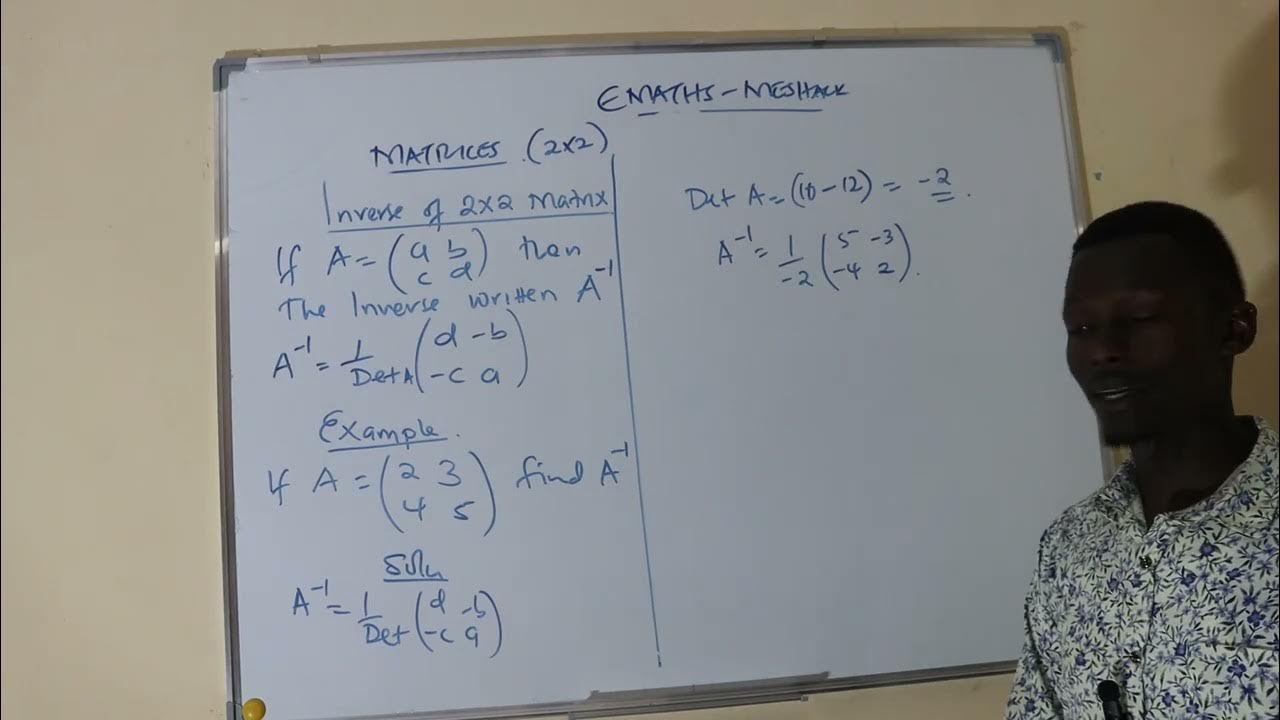 EMATHS - MESHACK
MATRICES (2x2)
Inverse of 2x2 Matrix
If A = (a b
c d) then
The Inverse written A⁻¹
A⁻¹ = 1/Det A (d -b
-c a)
Example.
If A = (2 3
4 5) find A⁻¹
Soln
A⁻¹ = 1/Det (d -b
-c a)
Det A = (10 - 12) = -2.
A⁻¹ = 1/-2 (5 -3
-4 2).